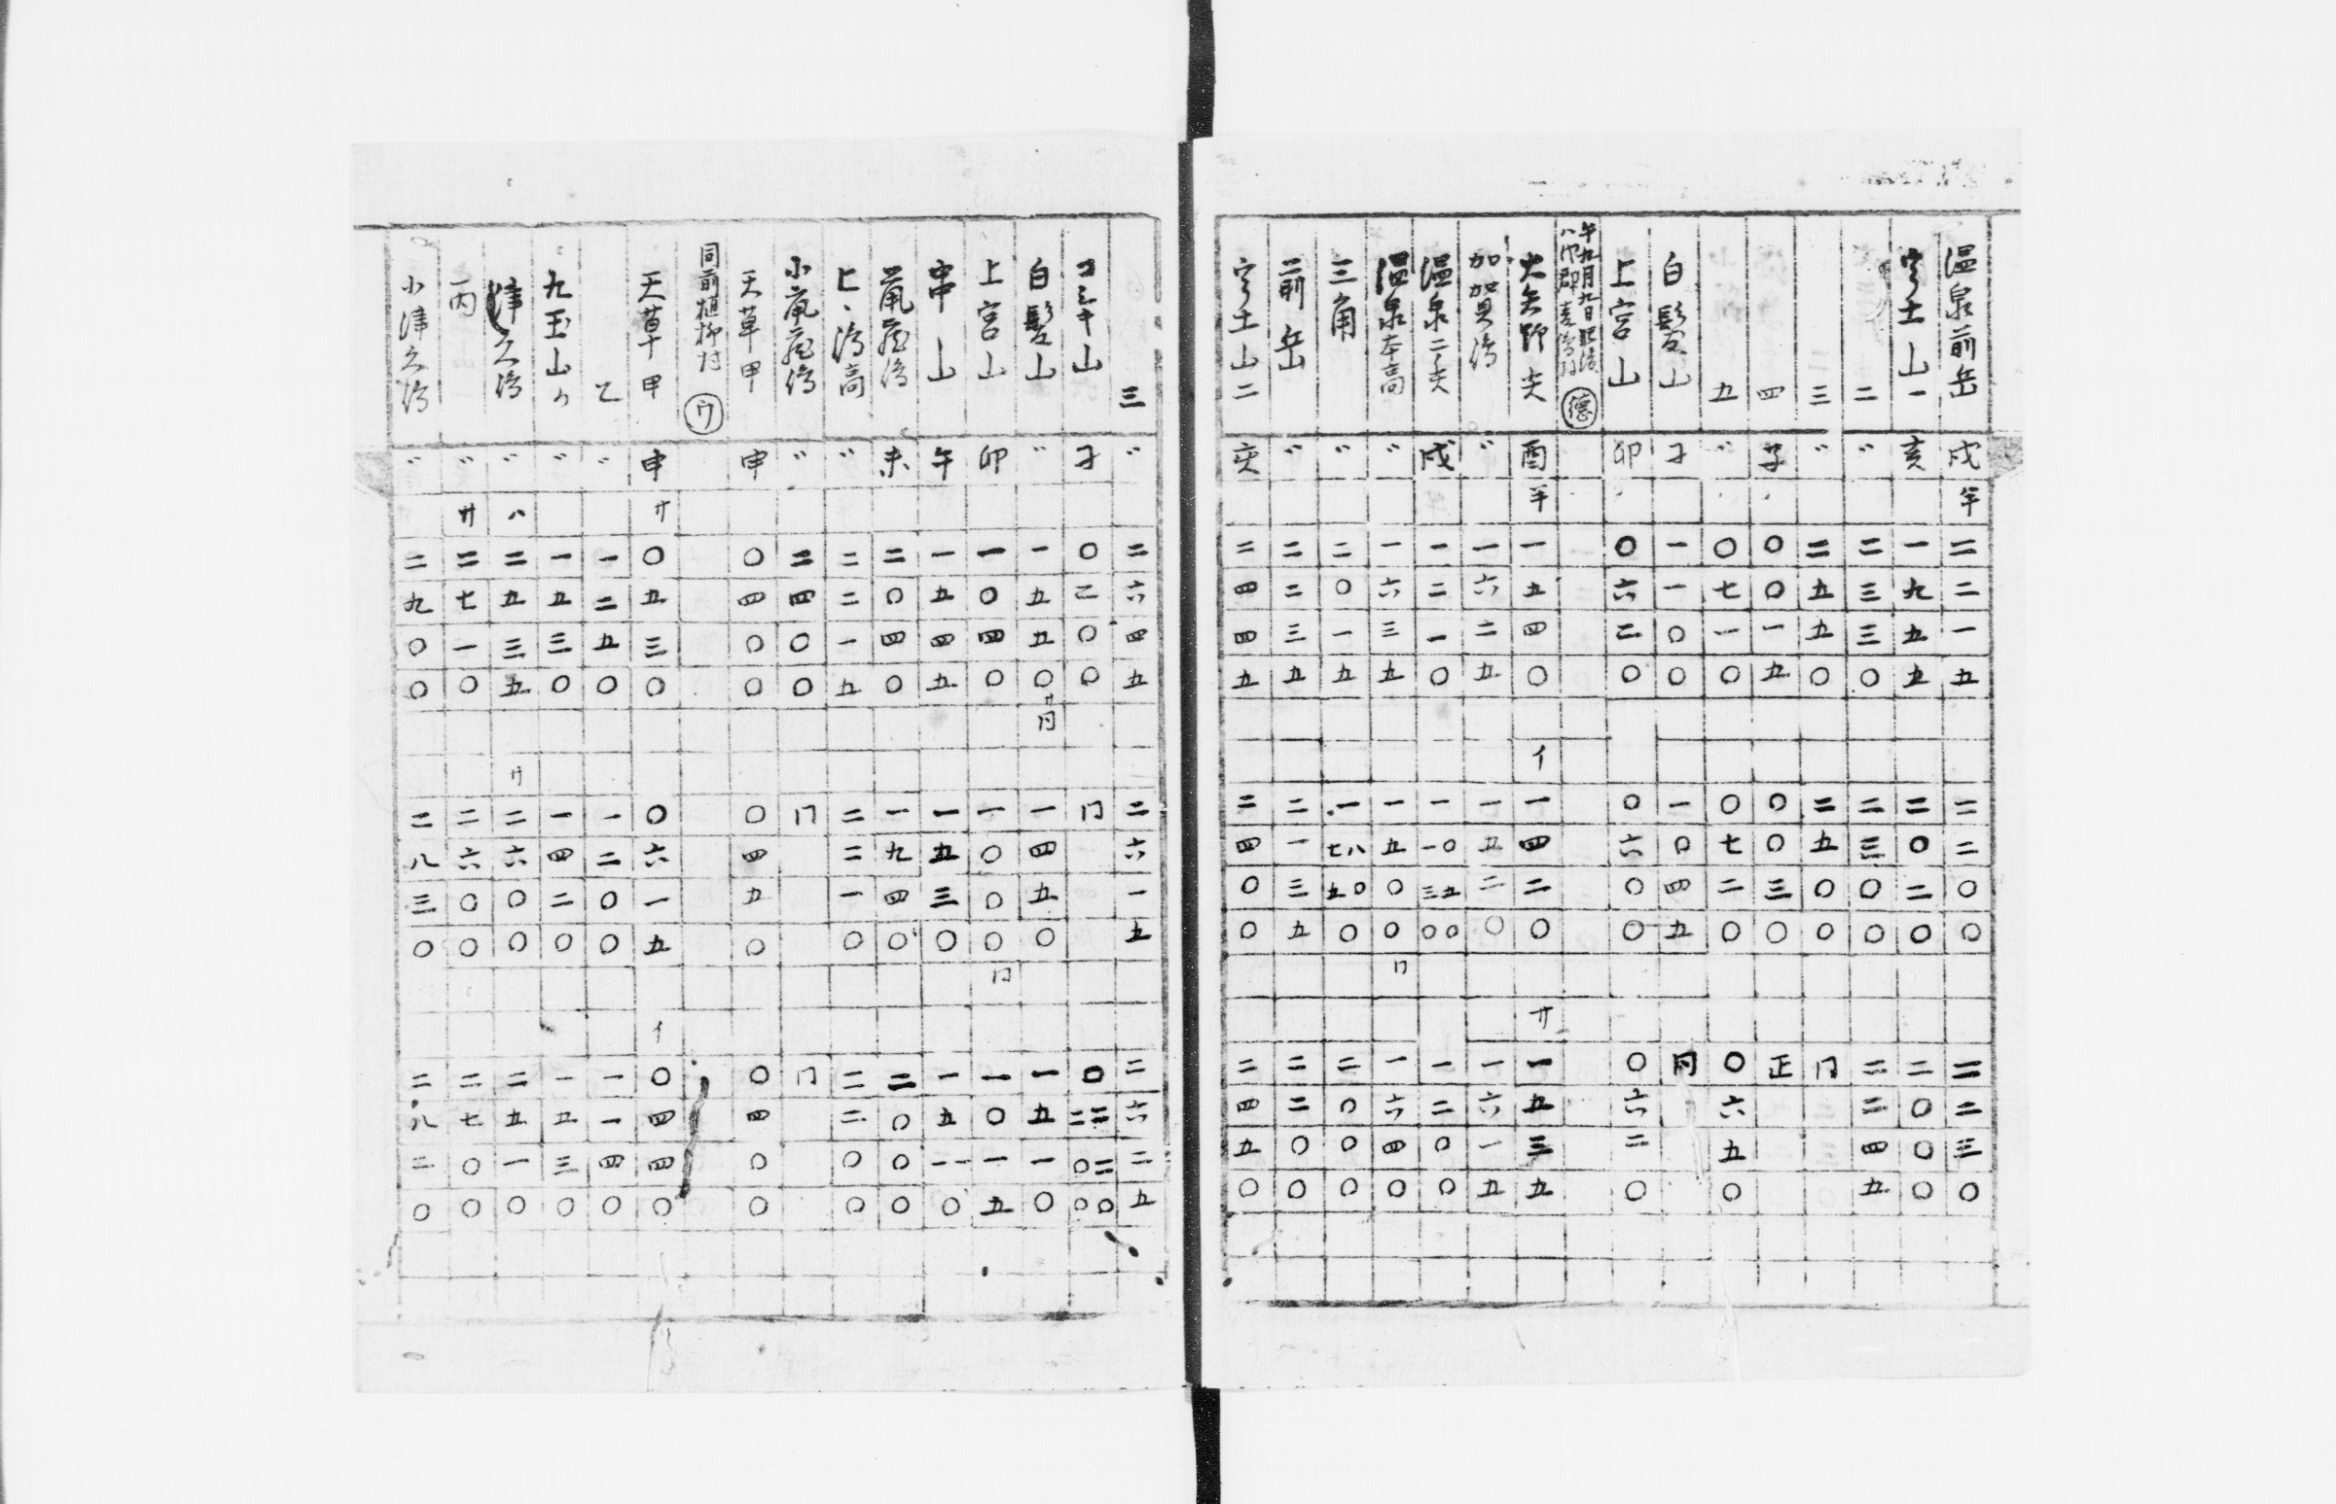 温泉前岳 戌 半 二二一五 二二〇〇 二二三〇
宇土山一 亥 一九五五 二〇二〇 二〇〇〇
二 〃 二三三〇 二三〇〇 二二四五
三 〃 二五五〇 二五〇〇 冂
四 子 〇〇一五 〇〇三〇 正
五 〃 〇七一〇 〇七二〇 〇六五〇
白髪山 子 一一〇〇 一〇四五 同
上宮山 卯 〇六二〇 〇六〇〇 〇六二〇
午九月九日肥後
八代郡麦嶋村 徳
大矢野 酉 半 一五四〇 イ 一四二〇 サ 一五三五
加賀嶋 〃 一六二五 一五二〇 一六一五
温泉二 戌 一二一〇 一 一〇 三五 〇〇 一二〇〇
温泉本高 〃 一六三五 一五〇〇 冂 一六四〇
三角 〃 二〇一五 一 七八 五〇 〇 二〇〇〇
二前岳 〃 二二三五 二一三五 二二〇〇
宇土山二 亥 二四四五 二四〇〇 二四五〇
三 〃 二六四五 二六一五 二六二五
山 子 〇二〇〇 冂 〇 二二 〇二 〇〇
白髪山 〃 一五五〇 サ同 一四五〇 一五一〇
上宮山 卯 一〇四〇 一〇〇〇 冂 一〇一五
中山 午 一五四五 一五三〇 一五 一一 〇
鼠蔵嶋 未 二〇四〇 一九四〇 二〇〇〇
上、嶋高 〃 二二一五 二二一〇 二二〇〇
小鼠蔵嶋 〃 二四〇〇 冂 冂
天草甲 申 〇四〇〇 〇四五〇 〇四〇〇
同前植柳村 ウ
天草甲 申 サ 〇五三〇 〇六一五 イ 〇四四〇
乙 〃 一二五〇 一二〇〇 一一四〇
九玉山カ 〃 一五三〇 一四二〇 一五三〇
津久嶋 〃 八 二五三五 リ 二六〇〇 二五一〇
丙 〃 サ 二七一〇 二六〇〇 二七〇〇
小津久嶋 〃 二九〇〇 二八三〇 二八二〇